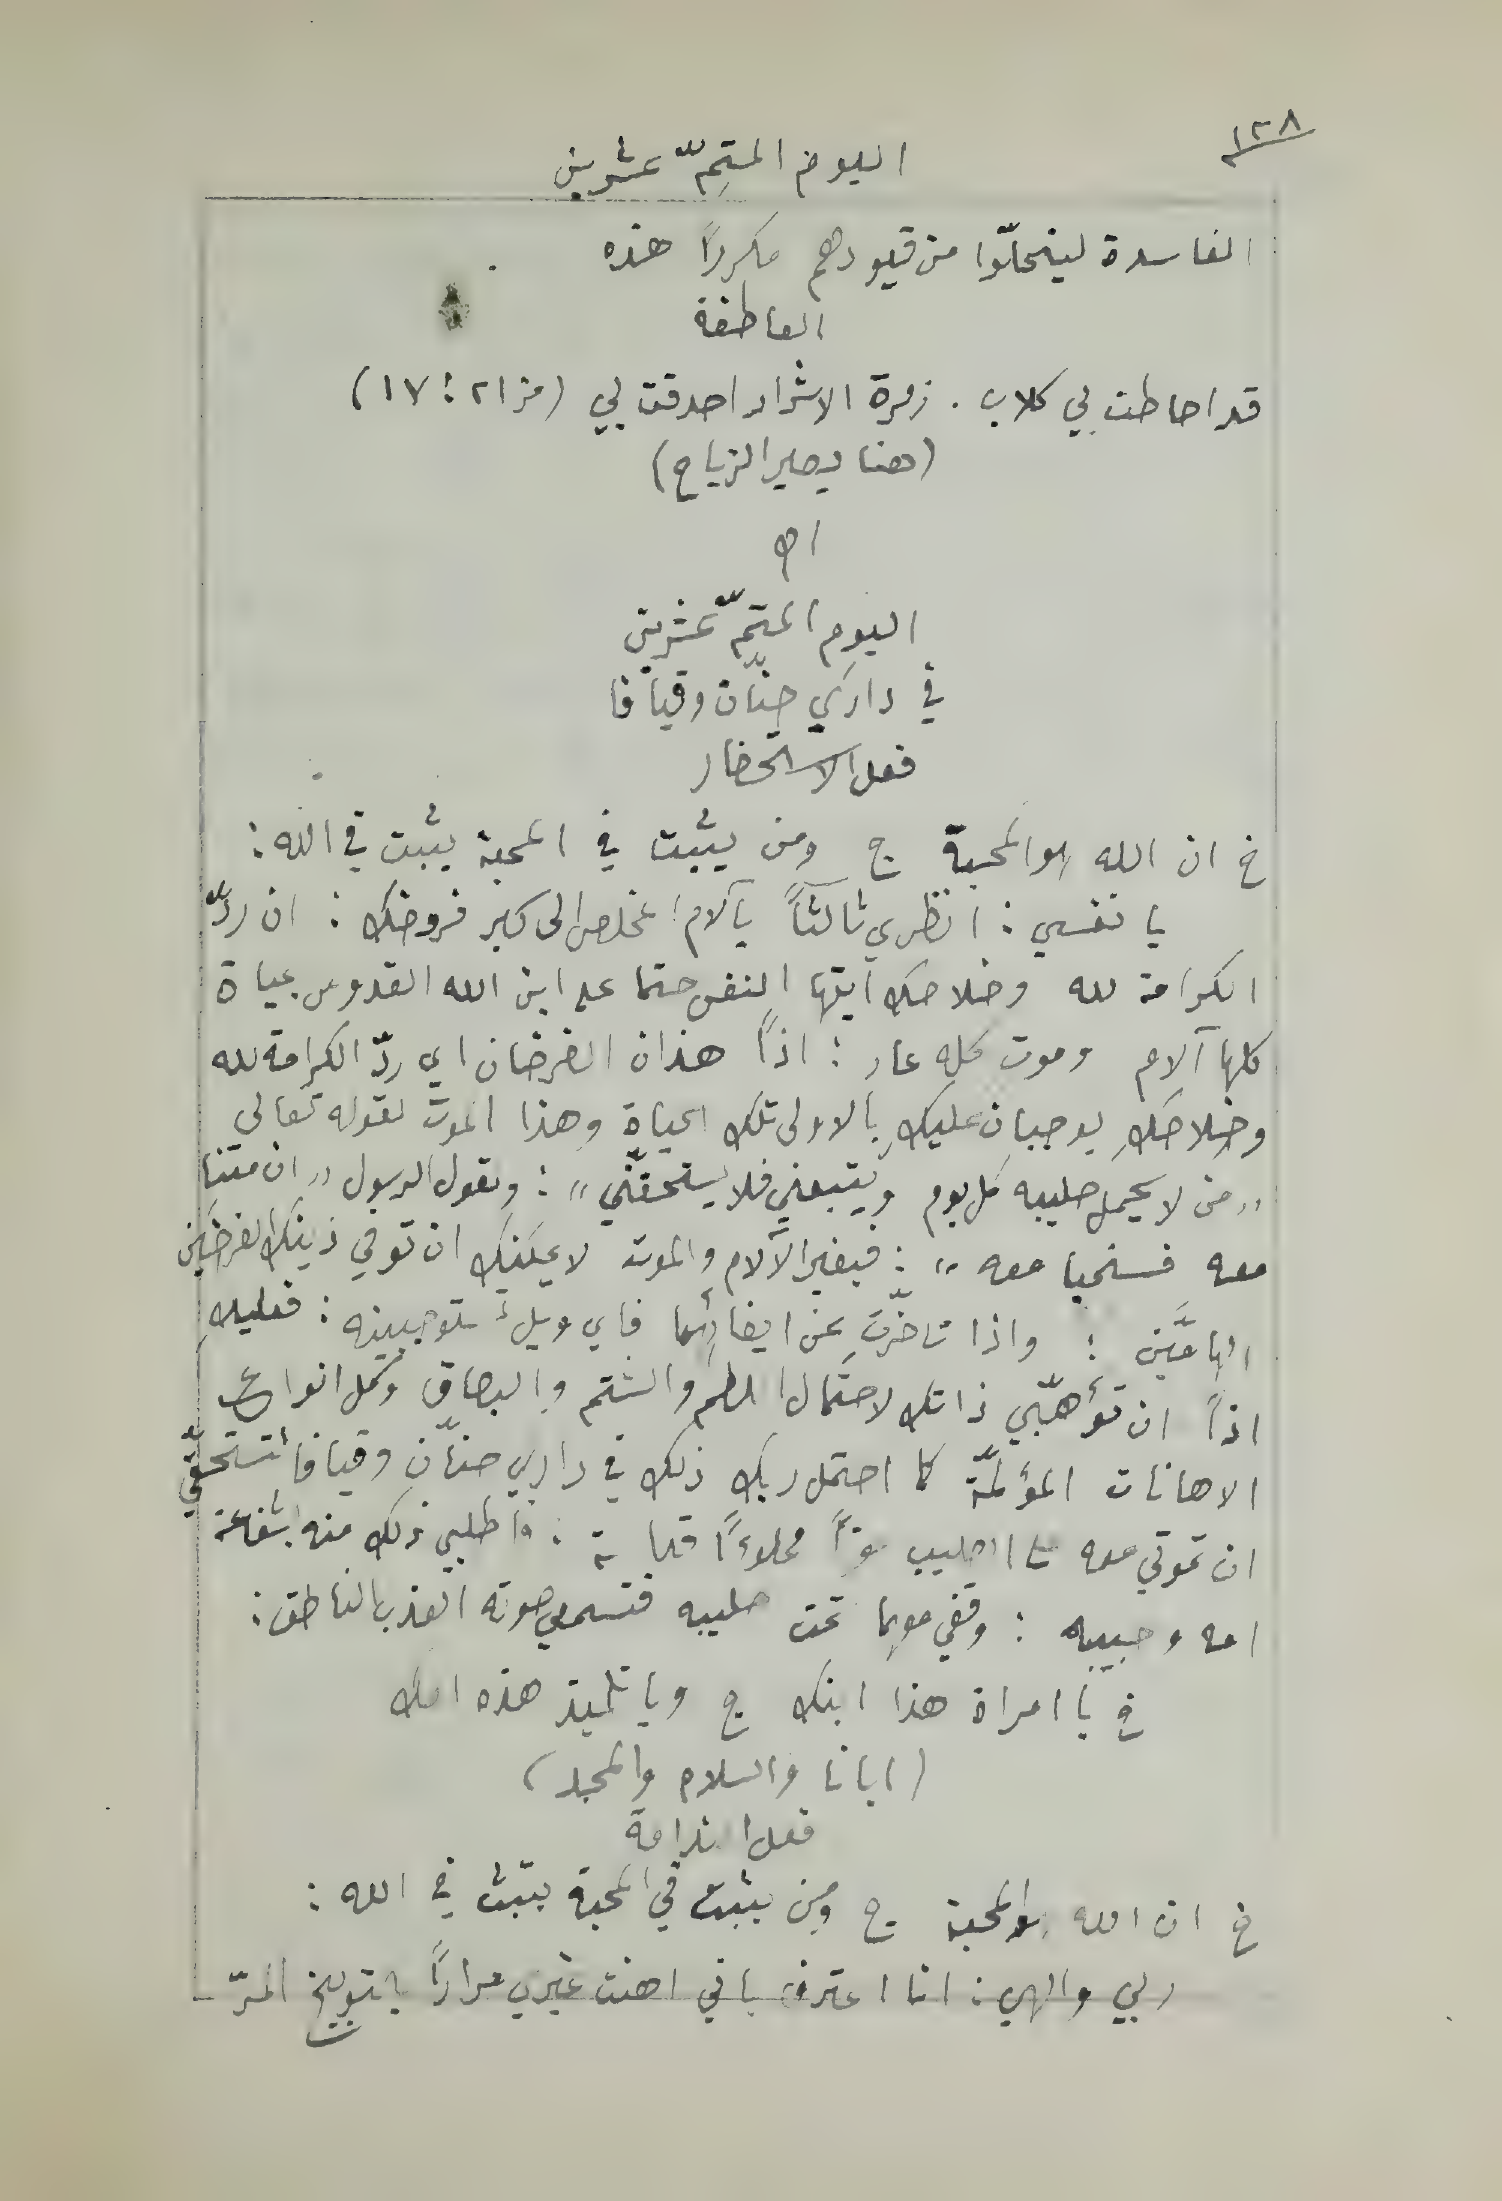 ١٣٨
اليوم المتِمّ عشرين
الفاسدة لينحلّوا من قيودهم مكررًا هذه
العاطفة
قد احاطت بي كلاب . زمرة الاشرار احدقت بي (مز ٢١ : ١٧)
(هنا يصير الزياح)
اليوم المتمّ عشرين
في دارَي حنّان وقيافا
فعل الاستحضار
خ ان الله هو المحبة ج ومن يثبت في المحبة يثبت في الله :
يا نفسي : انظري ثالثًا بآلام المخلص الى كبر فروضك : ان ردّ
الكرامة لله وخلاصك ايتها النفس حتما على ابن الله القدوس بحياة
كلها آلام وموت كله عار : اذًا هذان الفرضان اي ردّ الكرامة لله
وخلاصكِ يوجبان عليكِ بالاولى تلك الحياة وهذا الموت لقوله تعالى
" من لا يحمل صليبه كل يوم ويتبعني فلا يستحقّني " : ولقول الرسول " ان متنا
معه فسنحيا معه " : فبغير الآلام والموت لا يمكنكِ ان توفي ذينك الفرضَين
الهامَّين : واذا تاخرتِ عن ايفائهما فاي ويل تستوجبينه : فعليكِ
اذًا ان تؤهّبي ذاتك لاحتمال اللطم والشتم والبصاق وكل انواع
الاهانات المؤلمة كما احتمل ربك ذلك في داري حنّان وقيافا لتستحقّي
ان تموتي معه على الصليب موتًا مملوءًا قداسة : فاطلبي ذلك منه بشفاعة
امه وحبيبه : وقفي معهما تحت صليبه فتسمعي صوته العذب الناطق :
خ يا امراة هذا ابنك ج ويا تلميذ هذه امك
(ابانا والسلام والمجد)
فعل الندامة
خ ان الله هو المحبة ج ومن يثبت في المحبة يثبت في الله :
ربي والهي : انا اعترف باني اهنت غيري مرارًا بالتوبيخ المرّ